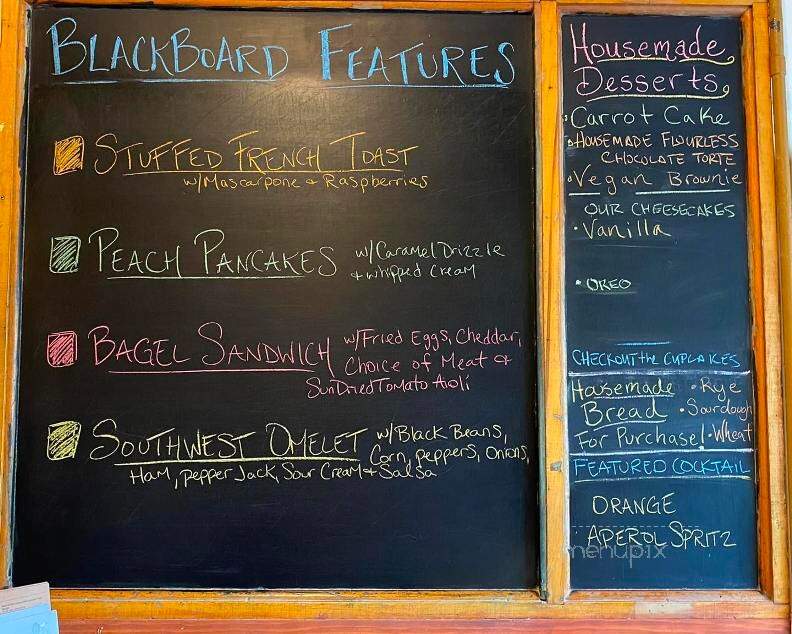 BLACKBOARD FEATURES
STUFFED FRENCH TOAST
w/Mascarpone & Raspberries
PEACH PANCAKES w/Caramel Drizzle
+ whipped cream
BAGEL SANDWICH w/Fried Eggs, Cheddar,
Choice of Meat &
SunDriedTomato Aoli
SOUTHWEST OMELET w/Black Beans,
Corn, peppers, Onions,
Ham, pepper Jack, Sour Cream + Salsa
Housemade
Desserts
Carrot Cake
HOUSEMADE FLOURLESS
CHOCOLATE TORTE
Vegan Brownie
OUR CHEESECAKES
• Vanilla
• OREO
CHECKOUT the CUPCAKES
Housemade • Rye
Bread • Sourdough
For Purchase! • Wheat
FEATURED COCKTAIL
ORANGE
APEROL SPRITZ
menupix